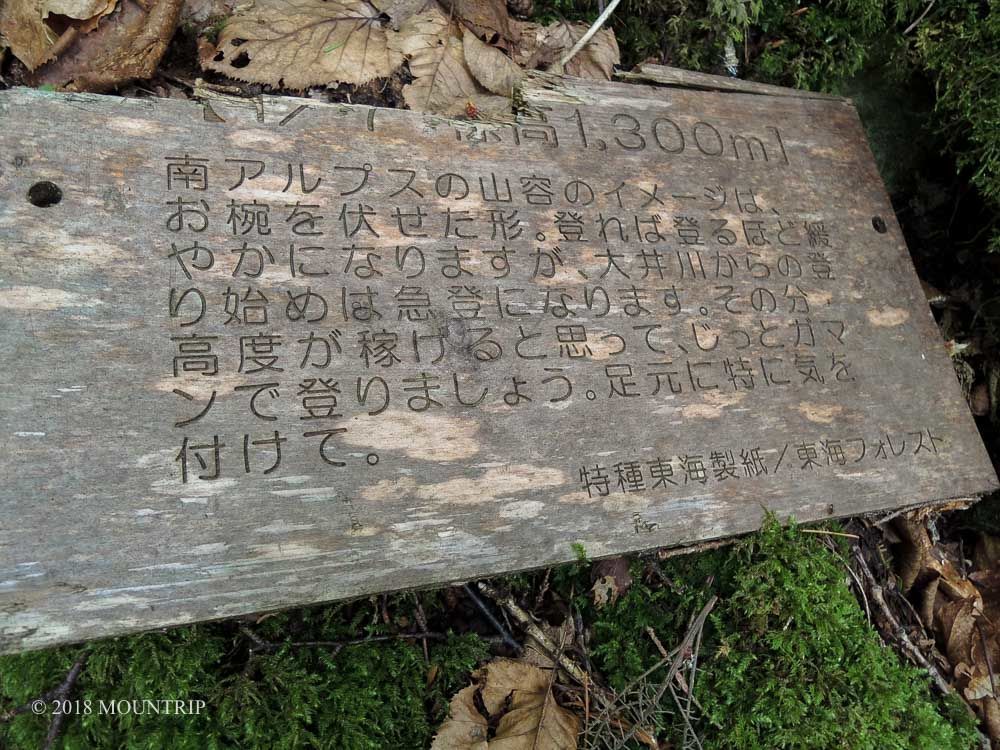 標高1,300m]
南アルプスの山容のイメージは、
お椀を伏せた形。登れば登るほど緩
やかになりますが、大井川からの登
り始めは急登になります。その分
高度が稼げると思って、じっとガマ
ンで登りましょう。足元に特に気を
付けて。
特種東海製紙/東海フォレスト
© 2018 MOUNTRIP